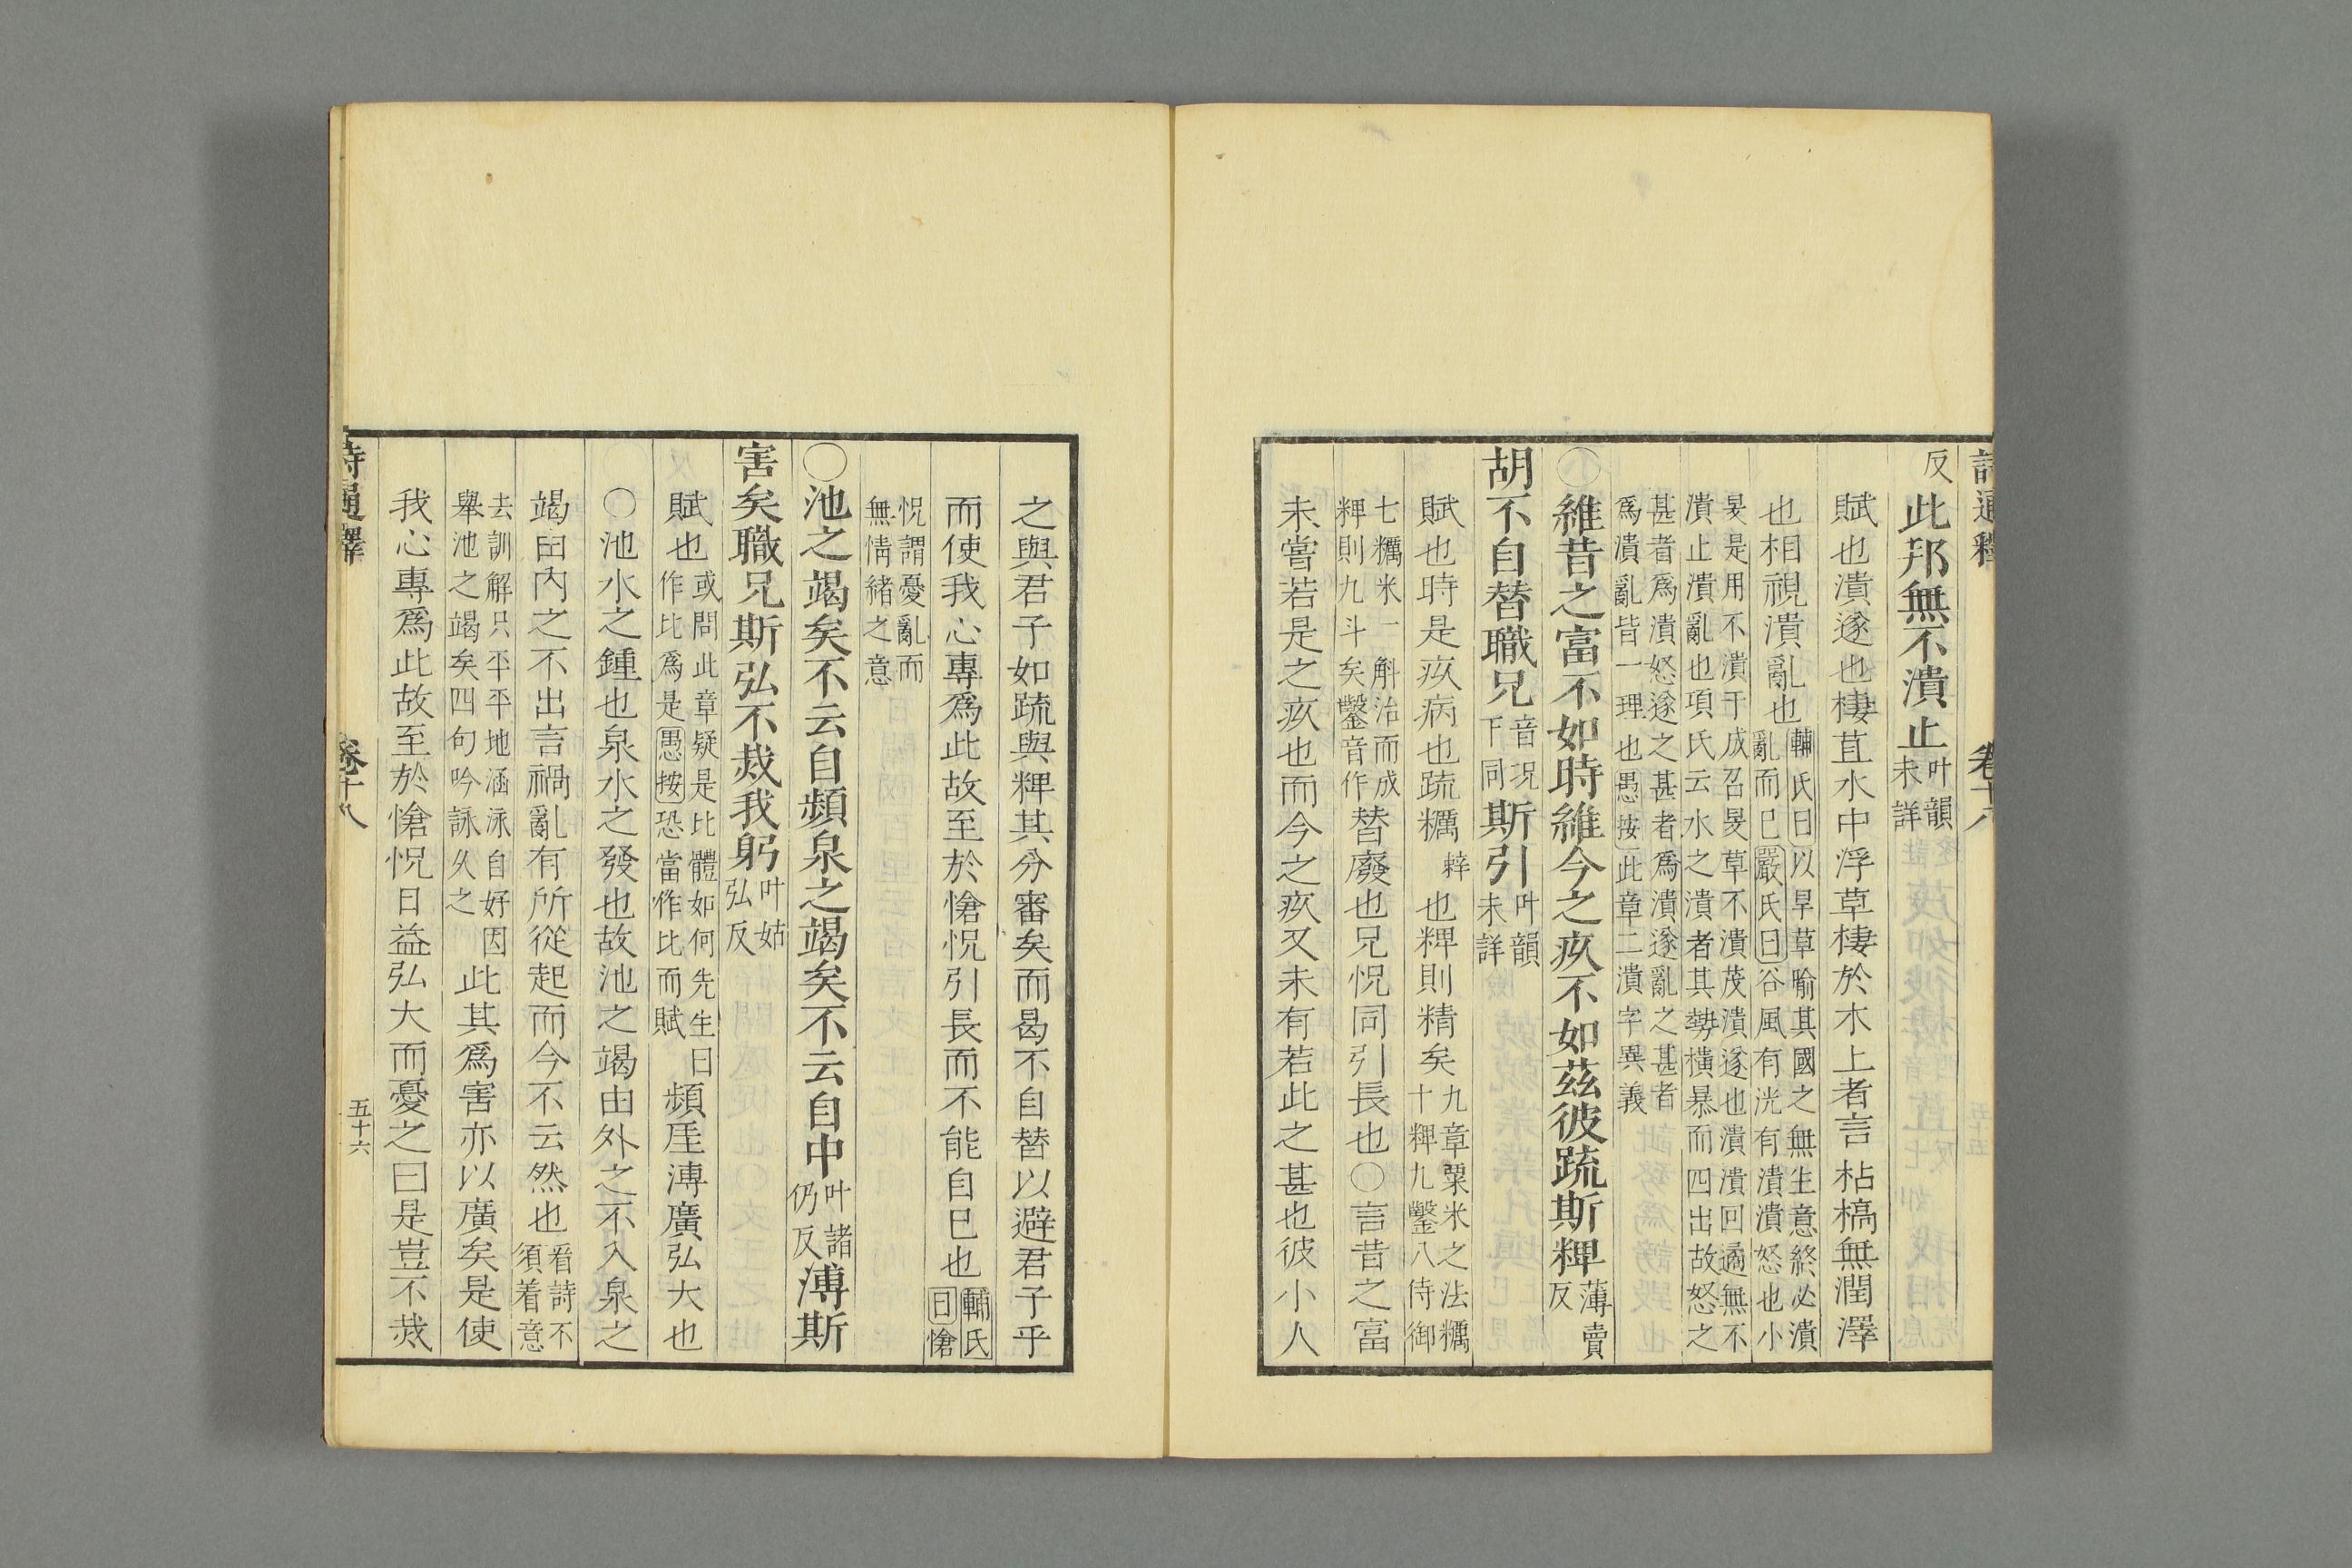 詩通釋 卷十八
反此邦無不潰止叶韻未詳
賦也潰遂也棲苴水中浮草棲於木上者言枯槁無潤澤
也相視潰亂也輔氏曰以旱草喻其國之無生意終必潰亂而已嚴氏曰谷風有洸有潰潰怒也小
旻是用不潰于成召旻草不潰茂潰遂也潰潰回遹無不潰止潰亂也項氏云水之潰者其勢橫暴而四出故怒之
甚者爲潰怒遂之甚者爲潰遂亂之甚者爲潰亂皆一理也愚按此章二潰字異義
○維昔之富不如時維今之疚不如茲彼疏斯粺薄賣反
胡不自替職兄音況下同斯引叶韻未詳
賦也時是疚病也疏糲粹也粺則精矣九章粟米之法糲十粺九鑿八侍御
七糲米一斛治而成粺則九斗矣鑿音作替廢也兄怳同引長也○言昔之富
未嘗若是之疚也而今之疚又未有若此之甚也彼小人
之與君子如疏與粺其分審矣而曷不自替以避君子乎
而使我心專爲此故至於愴怳引長而不能自已也輔氏曰愴
怳謂憂亂而無情緒之意
○池之竭矣不云自頻泉之竭矣不云自中叶諸仍反溥斯
害矣職兄斯弘不烖我躬叶姑弘反
賦也或問此章疑是比體如何先生曰作比爲是愚按恐當作比而賦頻厓溥廣弘大也
○池水之鍾也泉水之發也故池之竭由外之不入泉之
竭由內之不出言禍亂有所從起而今不云然也看詩不須着意
去訓解只平平地涵泳自好因舉池之竭矣四句吟詠久之此其爲害亦以廣矣是使
我心專爲此故至於愴怳日益弘大而憂之曰是豈不烖
詩通釋 卷十八 五十六